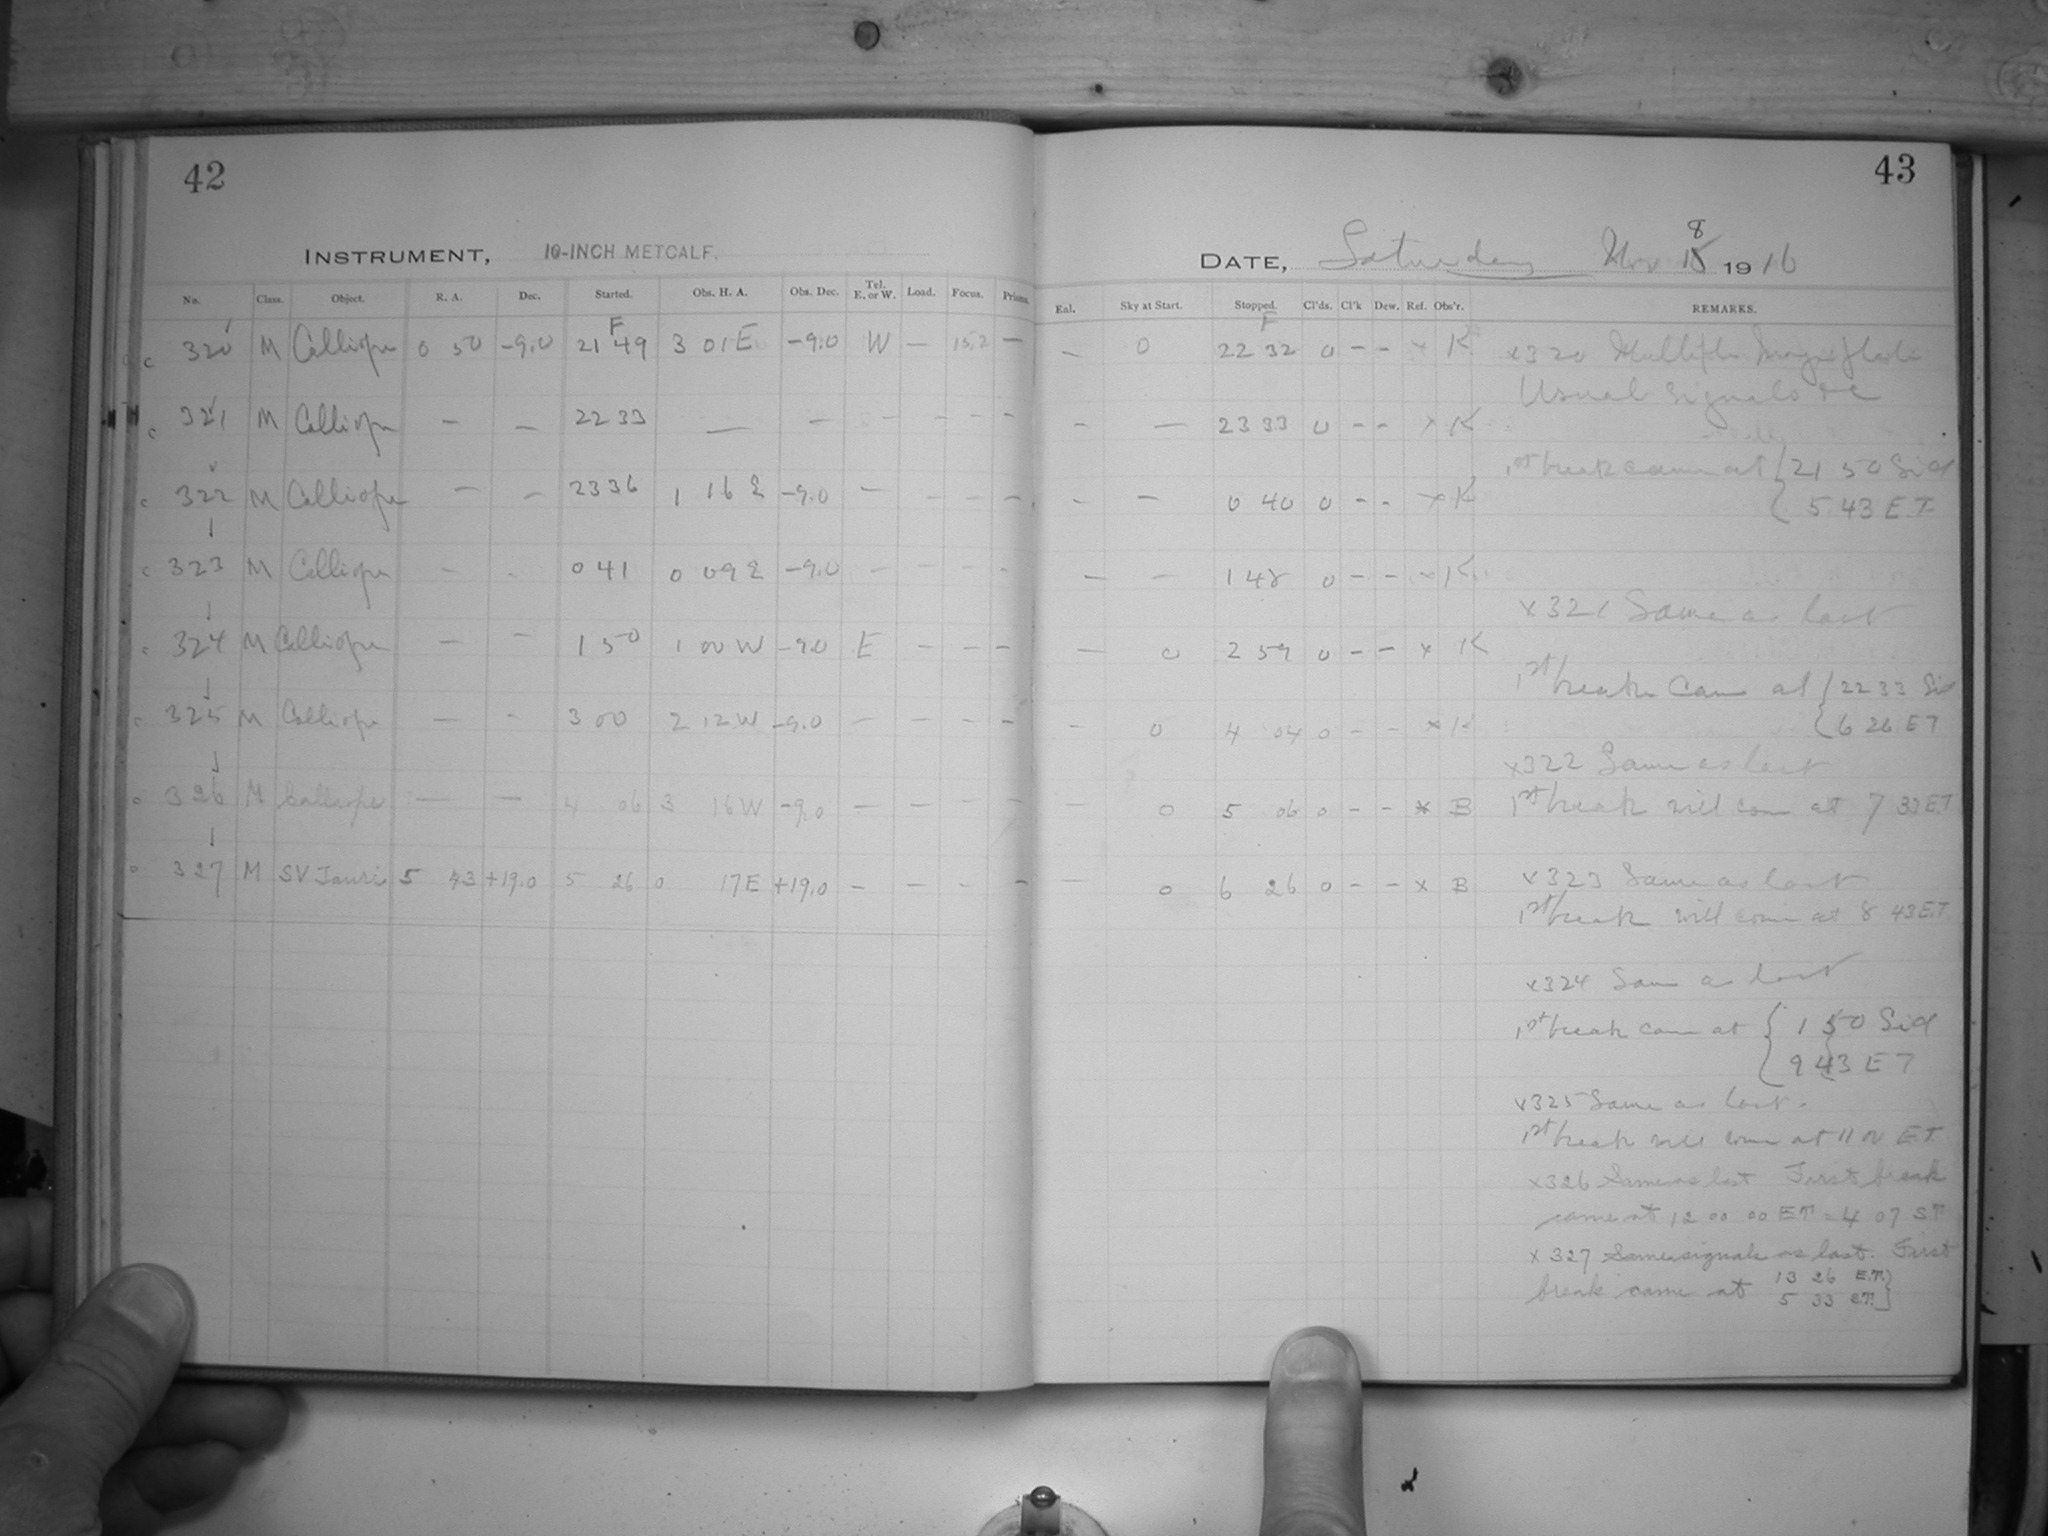 42
INSTRUMENT, 10-INCH METCALF.
No. Class. Object. R. A. Dec. Started. Obs. H. A. Obs. Dec. Tel. E. or W. Load. Focus. Prisms.
c 320 M Calliope 0 50 -9.0 F 21 49 3 01 E -9.0 W — 15.2 —
c 321 M Calliope — — 22 33 — — — — — —
c 322 M Calliope — — 23 36 1 16 E -9.0 — — — —
c 323 M Calliope — - 0 41 0 09 E -9.0 — — — -
c 324 M Calliope — — 1 50 1 00 W -9.0 E — — —
c 325 M Calliope — - 3 00 2 12 W -9.0 — — — —
o 326 M Calliope — — 4 06 3 16 W -9.0 — — — —
o 327 M SV Tauri 5 43 +19.0 5 26 0 17 E +19.0 — — - —
43
DATE, Saturday Nov 18 8 1916
Enl. Sky at Start. Stopped. Cl'ds. Cl'k Dew. Ref. Obs'r. REMARKS.
— 0 F 22 32 0 — — x K
- — 23 33 0 — — x K
— — 0 40 0 — — x K
— — 1 48 0 — — x K
— 0 2 59 0 — — x K
— 0 4 04 0 — — x K
— 0 5 06 0 — — x B
— 0 6 26 0 — — x B
x320 Multiple Image Plate
Usual Signals
1st break came at { 21 50 Sid
{ 5 43 E.T
x321 Same as last
1st break came at { 22 33 Sid
{ 6 26 ET
x322 Same as last
1st break will come at 7 33 ET
x323 Same as last
1st break will come at 8 43 E.T.
x324 Same as last
1st break came at { 1 50 Sid
{ 9 43 E T
x325 Same as last.
1st break will come at 11 00 E.T
x326 Same as last First break
came at 12 00 00 ET = 4 07 ST
x 327 Same signals as last. First
break came at 13 26 E.T. }
5 33 ST. }